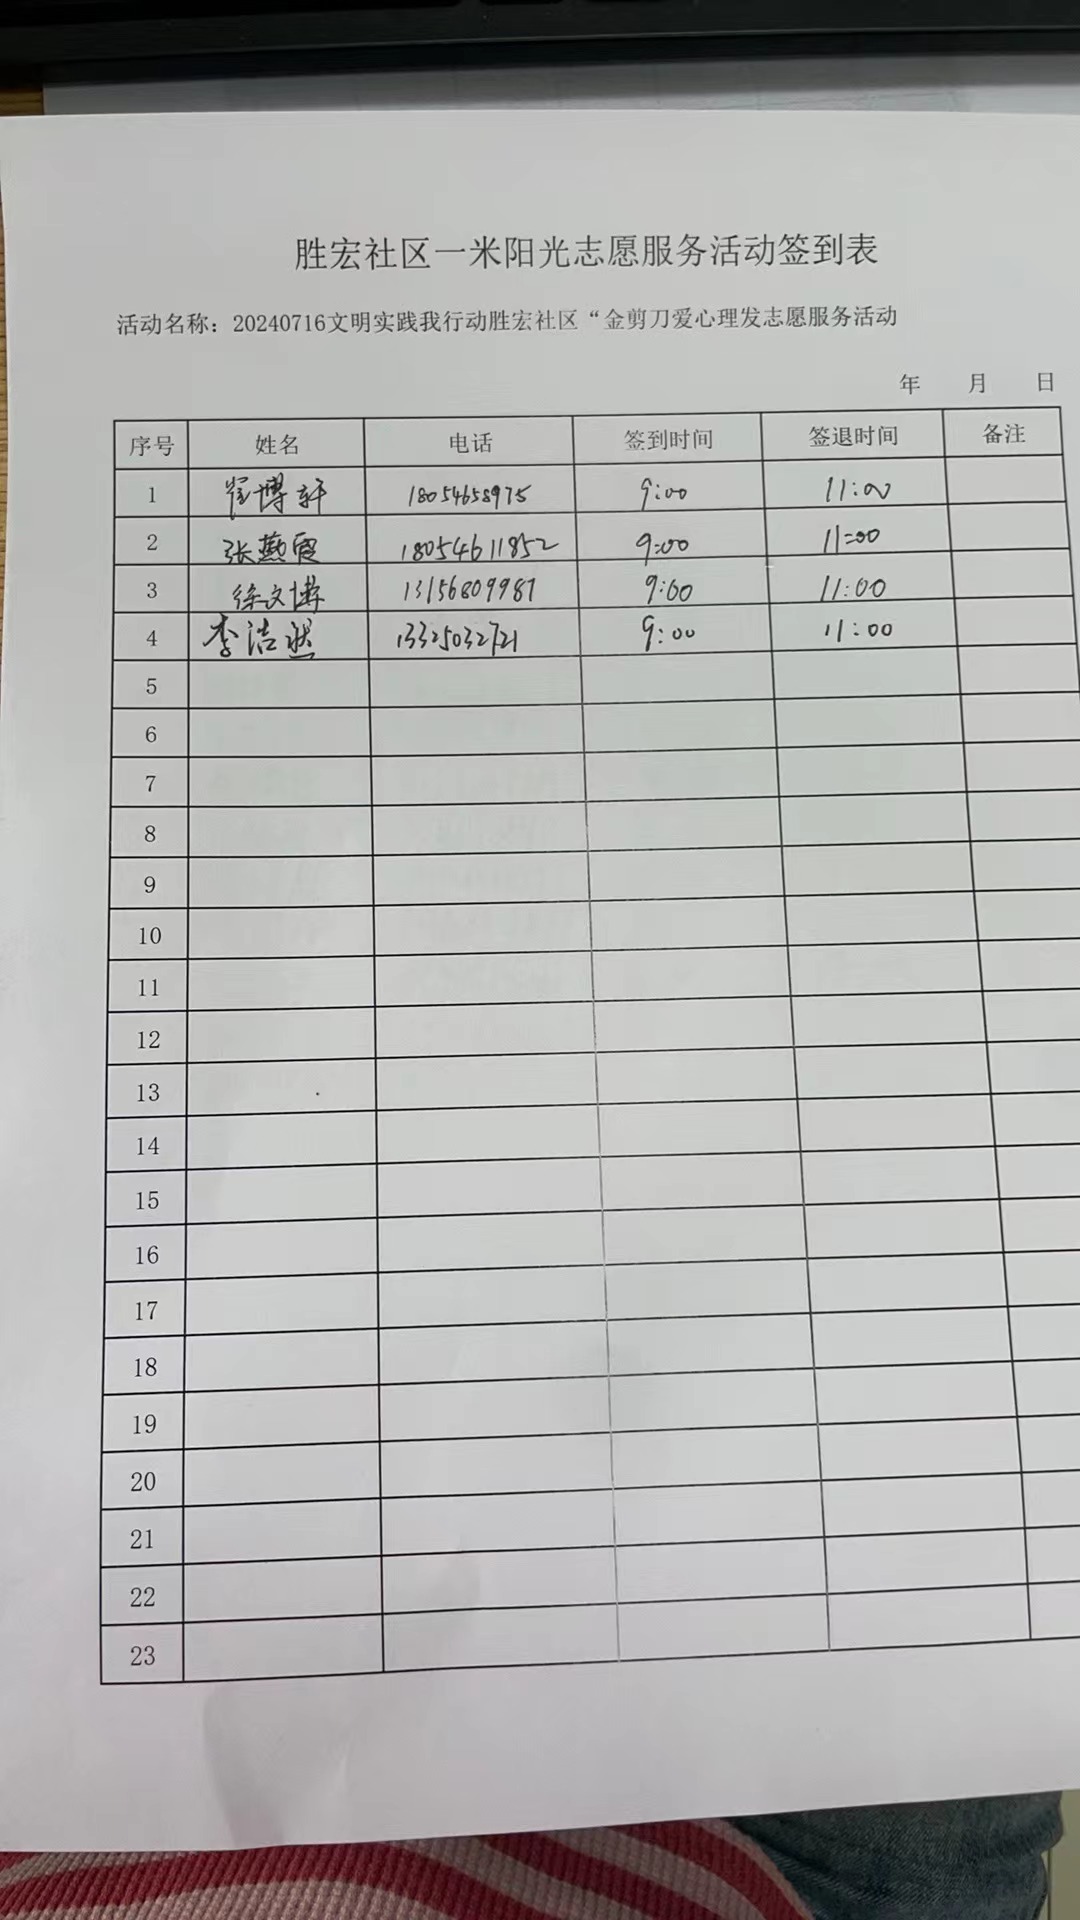 胜宏社区一米阳光志愿服务活动签到表
活动名称：20240716文明实践我行动胜宏社区“金剪刀爱心理发志愿服务活动
年 月 日
序号 姓名 电话 签到时间 签退时间 备注
1 崔博轩 18054658975 9:00 11:00
2 张燕霞 18054611852 9:00 11:00
3 徐文博 13156809987 9:00 11:00
4 李浩然 13325032721 9:00 11:00
5
6
7
8
9
10
11
12
13
14
15
16
17
18
19
20
21
22
23